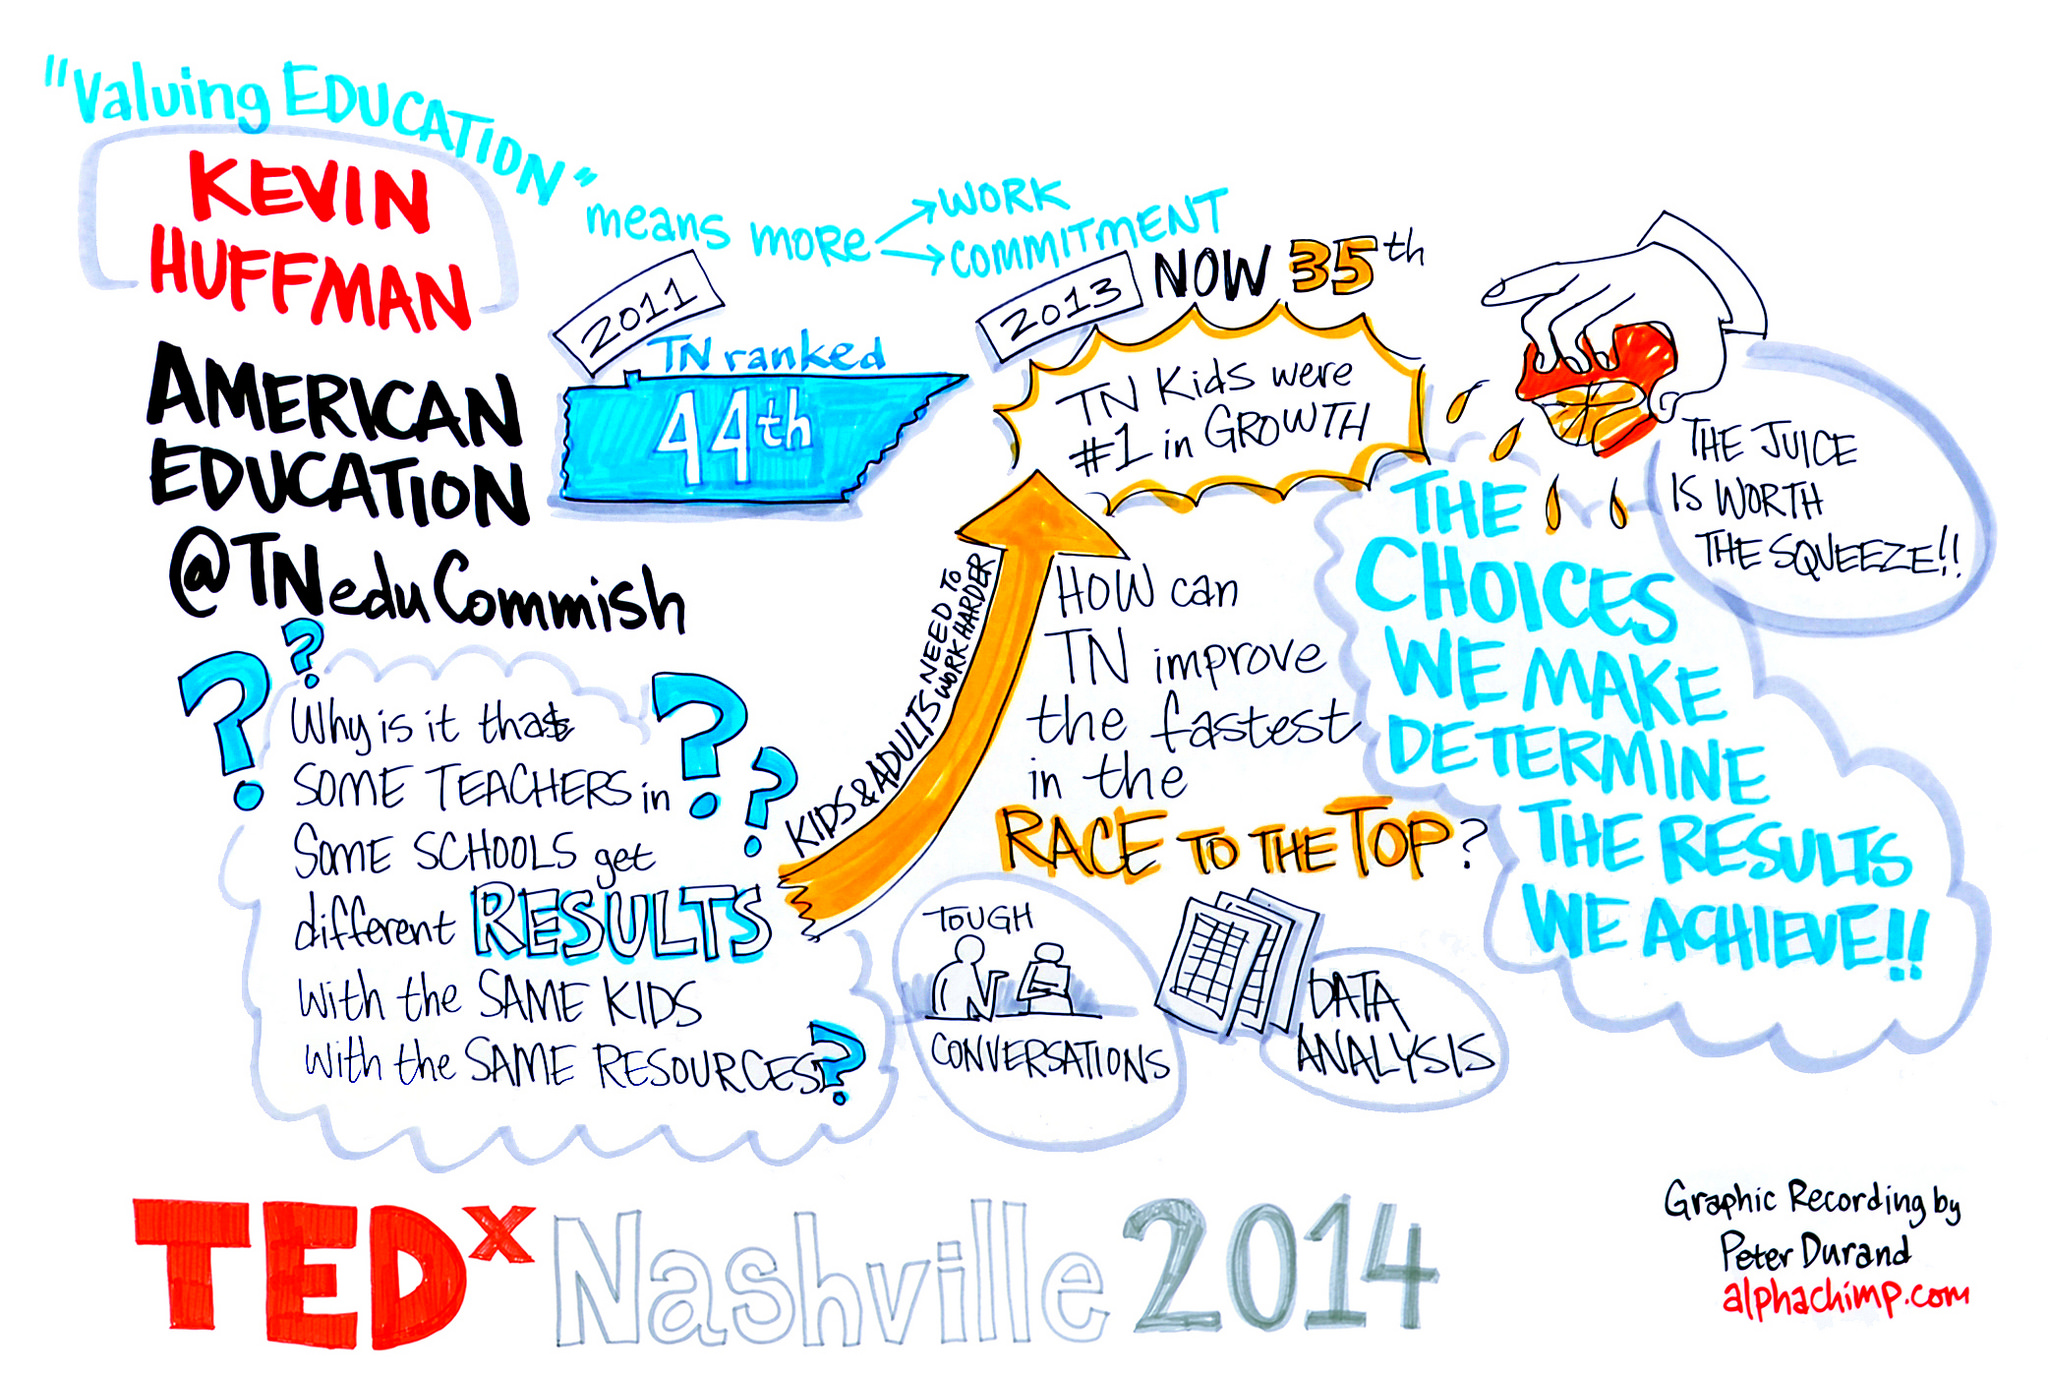 "Valuing EDUCATION" means more
WORK
COMMITMENT
KEVIN
HUFFMAN
AMERICAN
EDUCATION
@TNeduCommish
2011
TN ranked
44th
2013
NOW 35th
TN Kids were
#1 in GROWTH
THE JUICE
IS WORTH
THE SQUEEZE!!
KIDS & ADULTS NEED TO
WORK HARDER
HOW can
TN improve
the fastest
in the
RACE TO THE TOP?
THE
CHOICES
WE MAKE
DETERMINE
THE RESULTS
WE ACHIEVE!!
? ? ? ?
Why is it that
SOME TEACHERS in
SOME SCHOOLS get
different RESULTS
with the SAME KIDS
with the SAME RESOURCES?
TOUGH
CONVERSATIONS
DATA
ANALYSIS
TEDx Nashville 2014
Graphic Recording by
Peter Durand
alphachimp.com